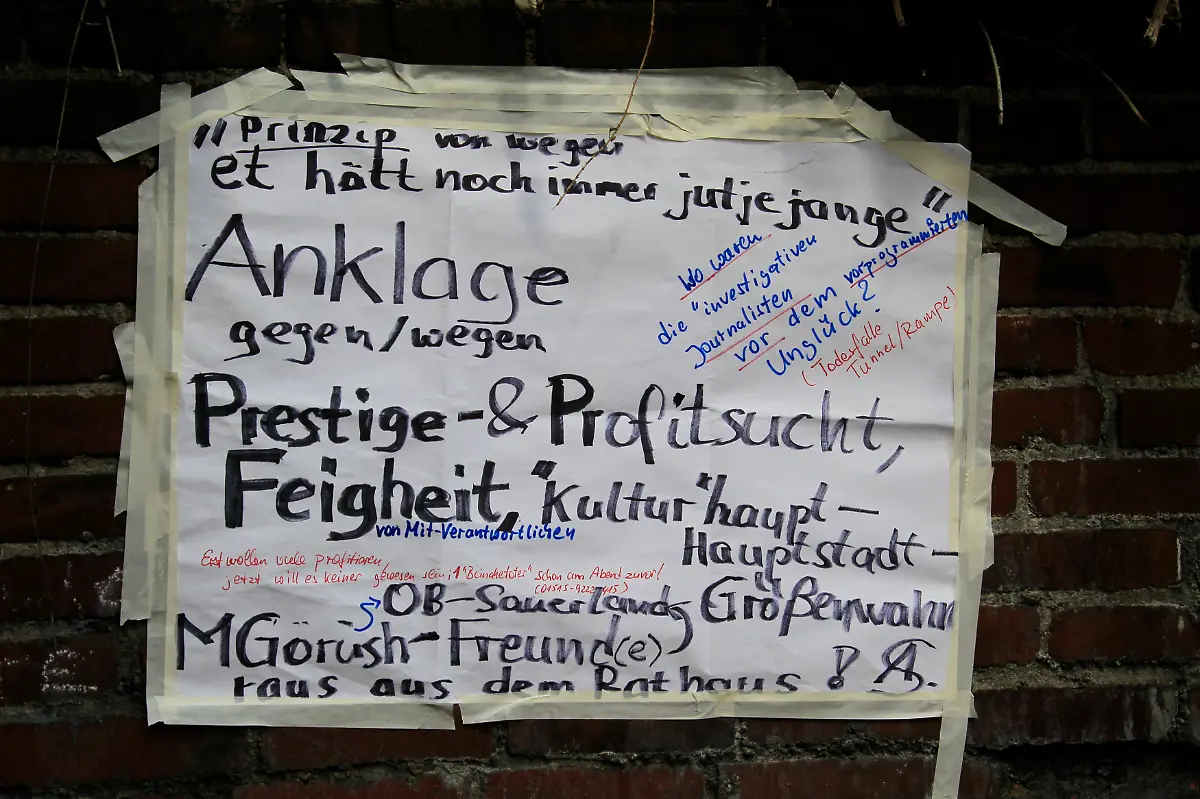 "Prinzip von wegen
et hätt noch immer jutje jange"
Anklage
gegen/wegen
Wo waren
die "investigativen
Journalisten
vor dem vorprogrammierten
Unglück?
(Todesfalle
Tunnel/Rampe)
Prestige-& Profitsucht,
Feigheit, "Kultur"haupt-
von Mit-Verantwortlichen
Hauptstadt-
Erst wollen viele profitieren,
jetzt will es keiner gewesen sein; 1 schon am Abend zuvor!
OB-Sauerland, Größenwahn
MGörüsh-Freund(e)
raus aus dem Rathaus !